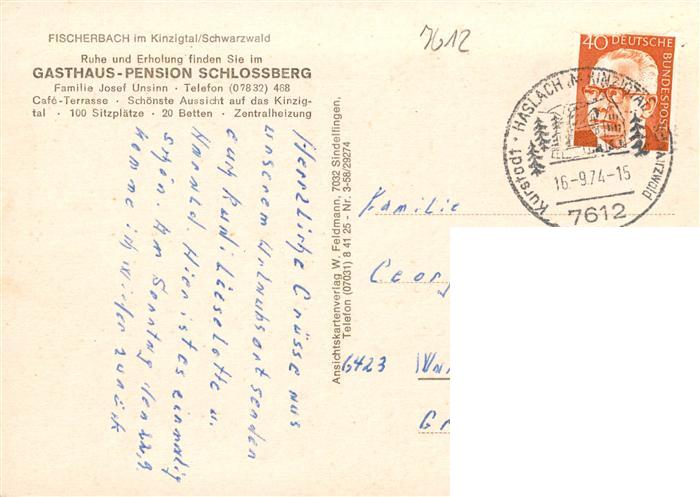 FISCHERBACH im Kinzigtal/Schwarzwald
Ruhe und Erholung finden Sie im
GASTHAUS-PENSION SCHLOSSBERG
Familie Josef Unsinn · Telefon (07832) 468
Café-Terrasse · Schönste Aussicht auf das Kinzig-
tal · 100 Sitzplätze · 20 Betten · Zentralheizung
7612
Herzliche Grüsse aus
unserem Urlaubsort senden
euch Rudi Lieselotte u.
Harald. Hier ist es einmalig
schön. Am Sonntag den 22.9.
komme ich wieder zurück
Ansichtskartenverlag W. Feldmann, 7032 Sindelfingen,
Telefon (07031) 8 41 25 - Nr. 3-58/29274
40 DEUTSCHE BUNDESPOST
Kurstadt · HASLACH IM KINZIGTAL
16.-9.74-15
7612
Familie
Georg
6423